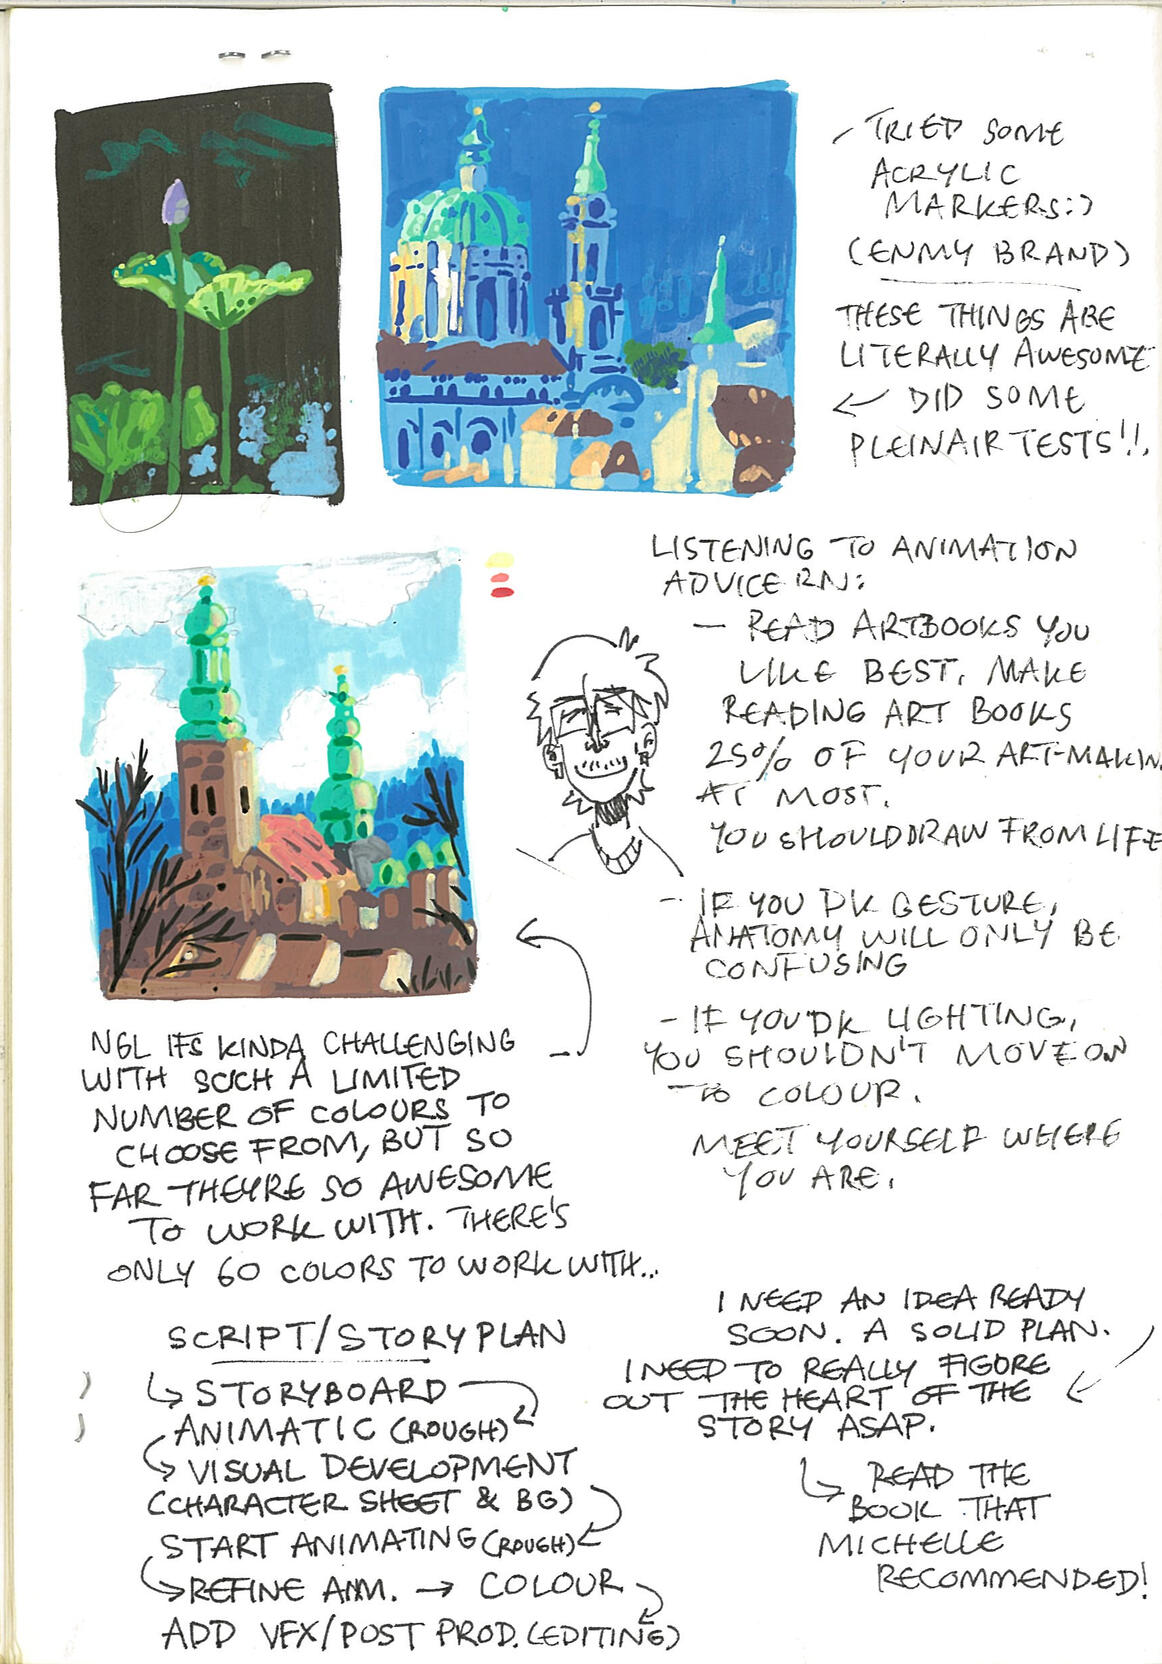 - TRIED SOME
ACRYLIC
MARKERS:)
(ENMY BRAND)
THESE THINGS ARE
LITERALLY AWESOME
← DID SOME
PLEINAIR TESTS!!
LISTENING TO ANIMATION
ADVICE RN:
- READ ARTBOOKS YOU
LIKE BEST. MAKE
READING ART BOOKS
25% OF YOUR ART-MAKIN
AT MOST.
YOU SHOULD DRAW FROM LIFE
- IF YOU DK GESTURE,
ANATOMY WILL ONLY BE
CONFUSING
- IF YOU DK LIGHTING,
YOU SHOULDN'T MOVE ON
TO COLOUR.
MEET YOURSELF WHERE
YOU ARE.
NGL IT'S KINDA CHALLENGING
WITH SUCH A LIMITED
NUMBER OF COLOURS TO
CHOOSE FROM, BUT SO
FAR THEYRE SO AWESOME
TO WORK WITH. THERE'S
ONLY 60 COLORS TO WORK WITH..
SCRIPT/STORY PLAN
↳ STORYBOARD
ANIMATIC (ROUGH)
↳ VISUAL DEVELOPMENT
(CHARACTER SHEET & BG)
START ANIMATING (ROUGH)
↳ REFINE ANM. → COLOUR
ADD VFX/POST PROD. (EDITING)
I NEED AN IDEA READY
SOON. A SOLID PLAN.
I NEED TO REALLY FIGURE
OUT THE HEART OF THE
STORY ASAP.
↳ READ THE
BOOK THAT
MICHELLE
RECOMMENDED!